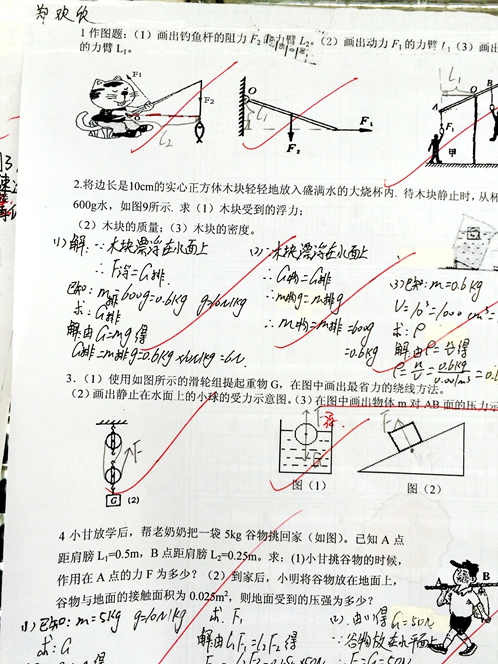 郑欢欣
1 作图题:(1)画出钓鱼杆的阻力 F₂ 力臂 L₂。(2)画出动力 F₁ 的力臂 L₁ (3)画出
的力臂 L₁。
F₁
F₂
L₂
O
L₁
F₂
F₁
L₁
O
B
A
F₁
甲
2.将边长是10cm的实心正方体木块轻轻地放入盛满水的大烧杯内. 待木块静止时,从杯
600g水,如图9所示. 求(1)木块受到的浮力;
(2)木块的质量;(3)木块的密度。
(1) 解:∵木块漂浮在水面上
∴F浮=G排
已知:m排=600g=0.6kg g=10N/kg
求:G排
解:由G=mg得
G排=m排g=0.6kg×10N/kg=6N
(2) ∵木块漂浮在水面上
∴G物=G排
∴m物g=m排g
∴m物=m排=600g
=0.6kg
(3)已知:m=0.6kg
V=10³=1000cm³=
求:ρ
解:由ρ=m/V得
3.(1)使用如图所示的滑轮组提起重物 G,在图中画出最省力的绕线方法。
(2)画出静止在水面上的小球的受力示意图。(3)在图中画出物体 m 对 AB 面的压力示
F
G
(2)
F浮
G
图(1)
F
图(2)
4 小甘放学后,帮老奶奶把一袋 5kg 谷物挑回家(如图)。已知 A 点
距肩膀 L₁=0.5m,B 点距肩膀 L₂=0.25m。求:(1)小甘挑谷物的时候,
作用在 A 点的力 F 为多少?(2)到家后,小明将谷物放在地面上,
谷物与地面的接触面积为 0.025m²,则地面受到的压强为多少?
B
(1) 已知:m=5kg g=10N/kg
求:G
求:F₁
解:由L₁F₁=L₂F₂得
(2).由(1)得G=50N
∵谷物放在水平面上